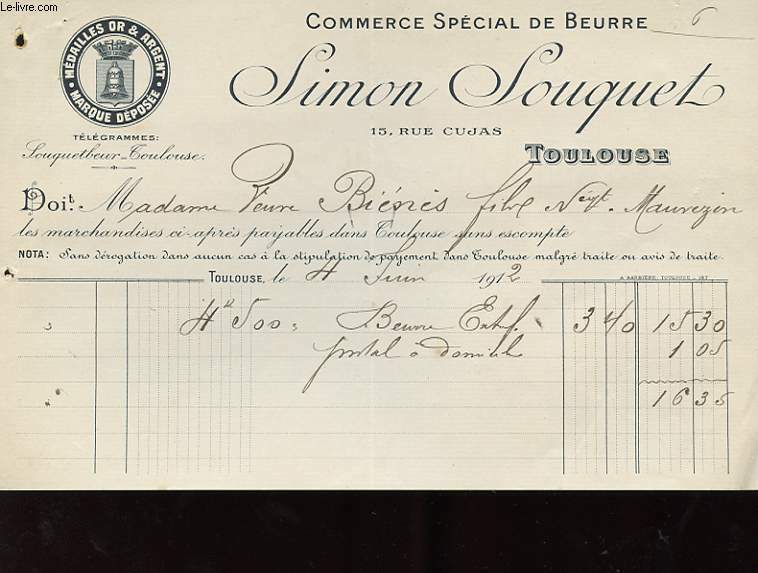 Le-livre.com
COMMERCE SPÉCIAL DE BEURRE 6
MÉDAILLES OR & ARGENT
MARQUE DÉPOSÉE
Simon Souquet
15, RUE CUJAS
TÉLÉGRAMMES:
Souquetbeur-Toulouse.
TOULOUSE
Doit Madame Veuve fils Négt Mauvezin
les marchandises ci-après payables dans Toulouse sans escompte
NOTA: Sans dérogation dans aucun cas à la stipulation de payement dans Toulouse malgré traite ou avis de traite.
TOULOUSE, le 4 Juin 1912
A. BARRIÈRE, TOULOUSE
4k 500 Beurre Extrf. 3 40 15 30
postal à domicile 1 05
16 35